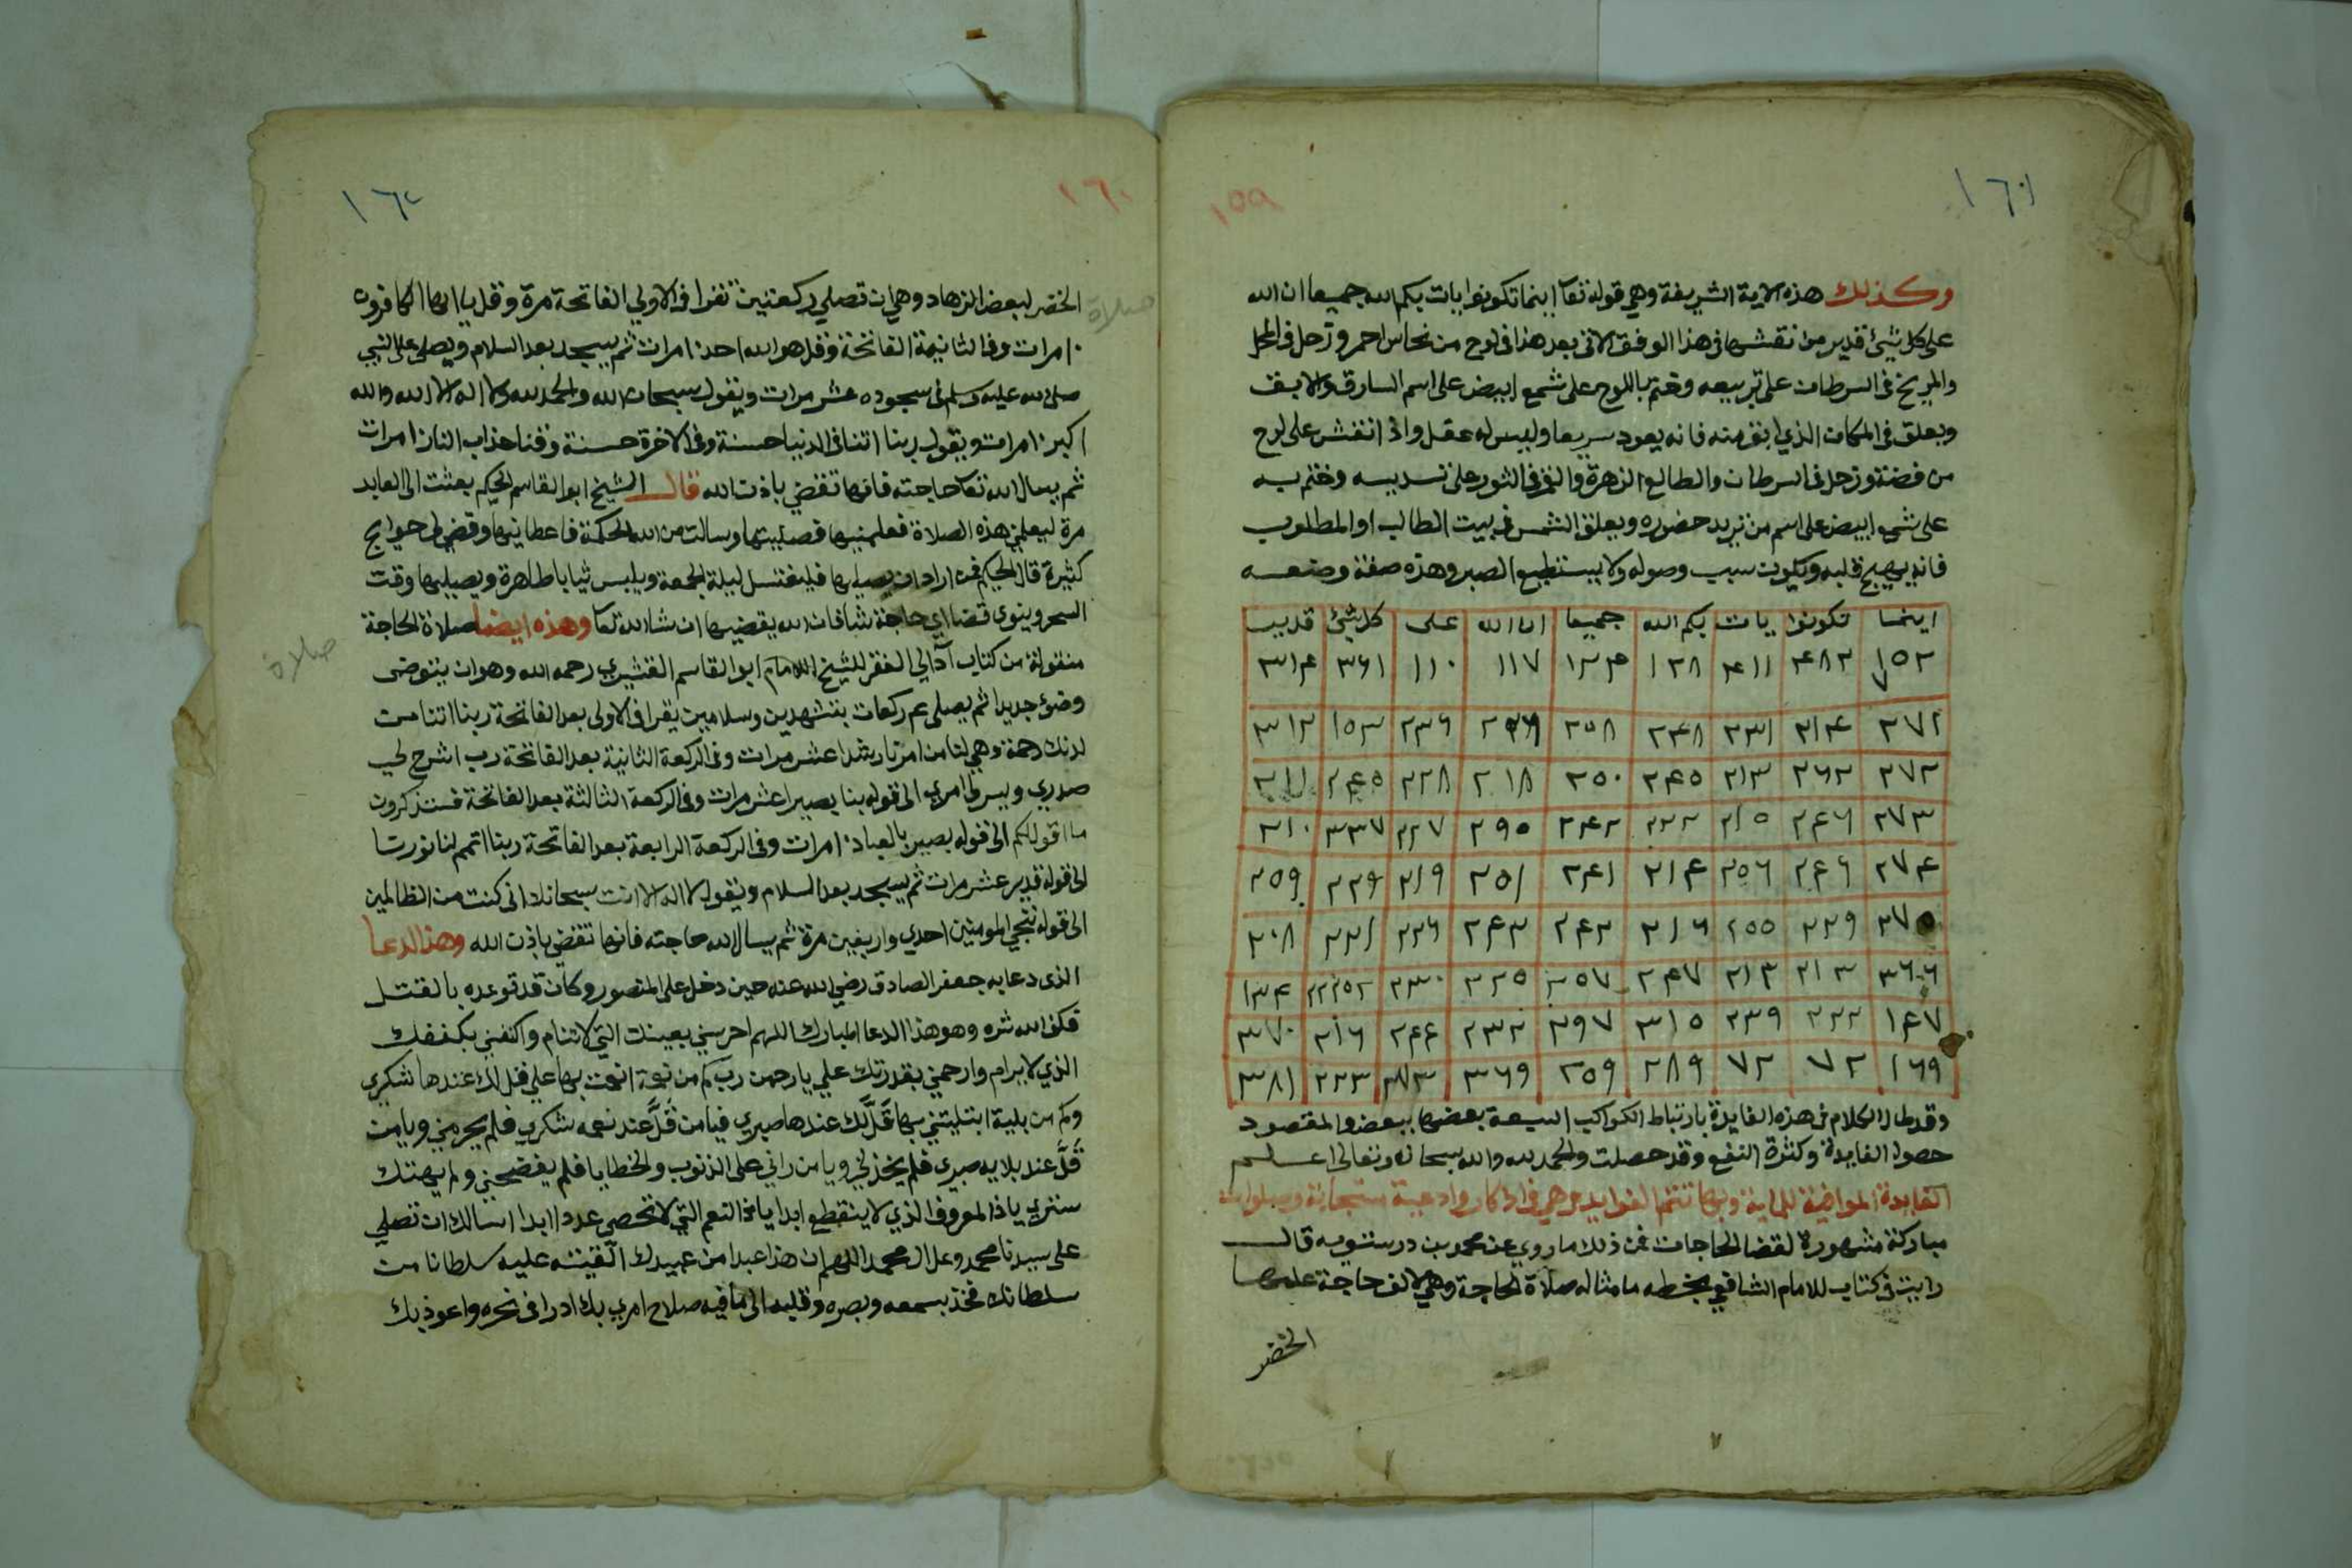 ١٦١
١٥٩
وكذلك هذه الاية الشريفة وهي قوله تعا اينما تكونوا يات بكم الله جميعا ان الله
على كل شيئ قدير من نقشها في هذا الوفق الاتي بعد هذا في لوح من نحاس احمر وزحل في الحمل
والمريخ في السرطان على تربيعه وختم باللوح على شمع ابيض على اسم السارق والابق
ويعلق في المكان الذي ابق منه فانه يعود سريعا وليس له عقل واذا انقش على لوح
من فضة وزحل في السرطان والطالع الزهرة والقمر في الثور على تسديسه وختم به
على شمع ابيض على اسم من تريد حضوره ويعلق الشمس في بيت الطالب او المطلوب
فانه يهيج قلبه ويكون سبب وصوله ولا يستطيع الصبر وهذه صفة وضعه
اينما تكونوا يات بكم الله جميعا ان الله على كل شيئ قدير
١٥٢ ٤٨٣ ٤١١ ١٢٨ ١٢٤ ١١٧ ١١٠ ٣٦١ ٣١٤
٢٧١ ٢١٤ ٢٣١ ٢٤٨ ٢٥٨ ٢٣٦ ١٥٣ ٣١٢
٢٧٢ ٢٦٢ ٢١٣ ٢٤٥ ٢٥٠ ٢١٨ ٢٢٨ ٢٤٥ ٣١١
٢٧٣ ٢٤٦ ٢١٥ ٢٢٢ ٢٤٢ ٢٩٥ ٢٢٧ ٣٣٧ ٣١٠
٢٧٤ ٢٤٦ ٢٥٦ ٢١٤ ٢٤١ ٢٥١ ٢١٩ ٢٢٩ ٢٥٩
٢٧٥ ٢٢٩ ٢٥٥ ٢١٦ ٢٤٢ ٢٤٣ ٢٢٦ ٢٢١ ٣٠٨
٣٦٦ ٢١٣ ٢١٣ ٢٤٧ ٢٥٧ ٢٢٥ ٢٣٠ ١٣٤
١٤٧ ٢٢٢ ٢٣٩ ٣١٥ ٢٩٧ ٢٣٢ ٢٤٤ ٢١٦ ٣٧٠
١٦٩ ٧٢ ٧٢ ٢٨٩ ٢٥٩ ٣٦٩ ٢٢٣ ٣٨١
وقد طال الكلام في هذه الفايدة بارتباط الكواكب السبعة بعضها ببعض والمقصود
حصول الفايدة وكثرة النفع وقد حصلت والحمد لله والله سبحانه وتعالى اعلم
الفايدة الموافية للماية وبها تتم الفوايد وهي في اذكار وادعية مستجابة وصلوات
مباركة مشهورة لقضا الحاجات فمن ذلك ما روي عن محمد بن درستويه قال
رايت في كتاب للامام الشافعي بخطه ما مثاله صلاة الحاجة وهي لالف حاجة علمها
الخضر
١٦٢
١٦٠
صلاة
الخضر لبعض الزهاد وهي ان تصلي ركعتين تقرا في الاولي الفاتحة مرة وقل يا ايها الكافرون
١٠ مرات وفي الثانية الفاتحة وقل هو الله احد ١٠ مرات ثم يسجد بعد السلام ويصلى على النبي
صلى الله عليه وسلم في سجوده عشر مرات ويقول سبحان الله والحمد لله ولا اله الا الله والله
اكبر ١٠ مرات ويقول ربنا اتنا في الدنيا حسنة وفي الاخرة حسنة وقنا عذاب النار ١٠ مرات
ثم يسال الله تعا حاجته فانها تقضي باذن الله قال الشيخ ابو القاسم الحكيم بعثت الى العابد
مرة ليعلمني هذه الصلاة فعلمنيها فصليتها وسالت من الله الحكمة فاعطانيها وقضي لي حوايج
كثيرة قال الحكيم فمن اراد ان يصليها فليغتسل ليلة الجمعة ويلبس ثيابا طاهرة ويصليها وقت
السحر وينوى قضا اي حاجة شا فان الله يقضيها ان شا الله تعا وهذه ايضا صلاة الحاجة
صلاة
منقولة من كتاب الفقر للشيخ الامام ابو القاسم القشيري رحمه الله وهو ان يتوضى
وضوء جديدا ثم يصلى ٤ ركعات بتشهدين وسلامين يقرا في الاولى بعد الفاتحة ربنا اتنا من
لدنك رحمة وهي لنا من امرنا رشدا عشر مرات وفي الركعة الثانية بعد الفاتحة رب اشرح لي
صدري ويسر لي امري الى قوله بنا بصيرا عشر مرات وفي الركعة الثالثة بعد الفاتحة فستذكرون
ما اقول لكم الى قوله بصير بالعباد ١٠ مرات وفي الركعة الرابعة بعد الفاتحة ربنا اتمم لنا نورنا
الى قوله قدير عشر مرات ثم يسجد بعد السلام ويقول لا اله الا انت سبحانك اني كنت من الظالمين
الى قوله ننجي المومنين احدي واربعين مرة ثم يسال الله حاجته فانها تقضي باذن الله وهذا الدعا
الذى دعا به جعفر الصادق رضي الله عنه حين دخل على المنصور وكان قد توعده بالقتل
فكفى الله شره وهو هذا الدعا المبارك اللهم احرسني بعينك التي لا تنام واكنفني بكنفك
الذي لا يرام وارحمني بقدرتك علي يا رحمن رب كم من نعمة انعمت بها علي قل لك عندها شكري
وكم من بلية ابتليتني بها قل لك عندها صبري فيا من قل عند نعمه شكري فلم يحرمني ويا من
قل عند بلايه صبري فلم يخذلني ويا من راني على الذنوب والخطايا فلم يفضحني ولم يهتك
ستري يا ذا المعروف الذي لا ينقطع ابدا يا ذا النعم التي لا تحصى عددا ابدا اسالك ان تصلي
على سيدنا محمد وعلى ال محمد اللهم ان هذا عبدا من عبيدك القيته عليه سلطانا من
سلطانك فخذ بسمعه وبصره وقلبه الى ما فيه صلاح امري بك ادرا في نحره واعوذ بك